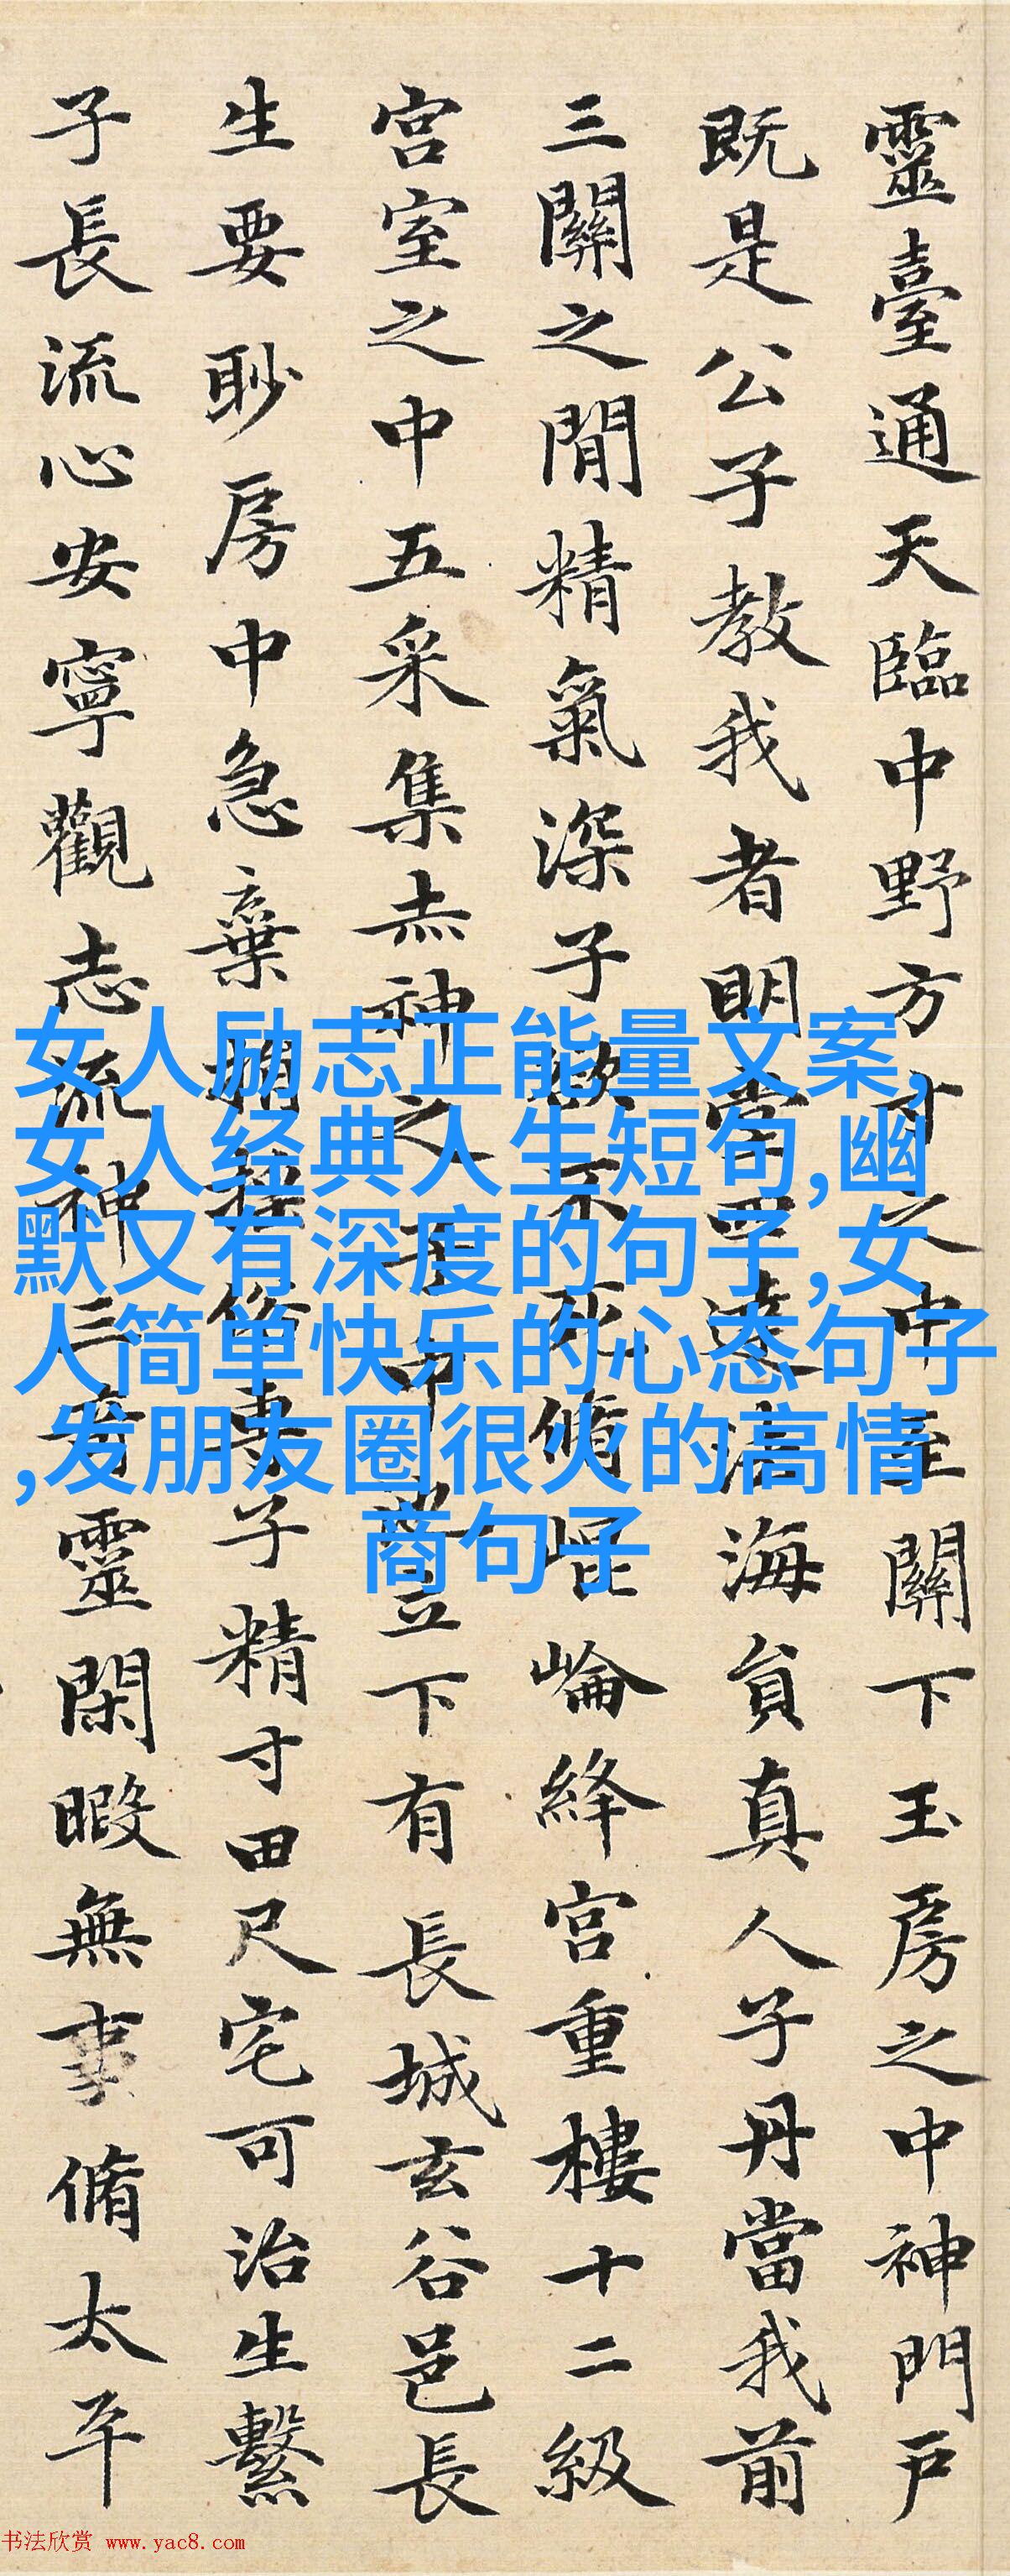 靈臺通天臨中野方寸之中至關下玉房之中神門戶
既是公子教我者明堂四達法海負真人子丹當我前
三關之閒精氣深子欲不死脩崐崘絳宮重樓十二級
宮室之中五采集赤神之子中池立下有長城玄谷邑長
生要眇房中急棄捐俗專子精寸田尺宅可治生繫
子長流心安寧觀志流神三奇靈閑暇無事脩太平
女人励志正能量文案,
女人经典人生短句,幽
默又有深度的句子,女
人简单快乐的心态句子
,发朋友圈很火的高情
商句子
书法欣赏 www.yac8.com